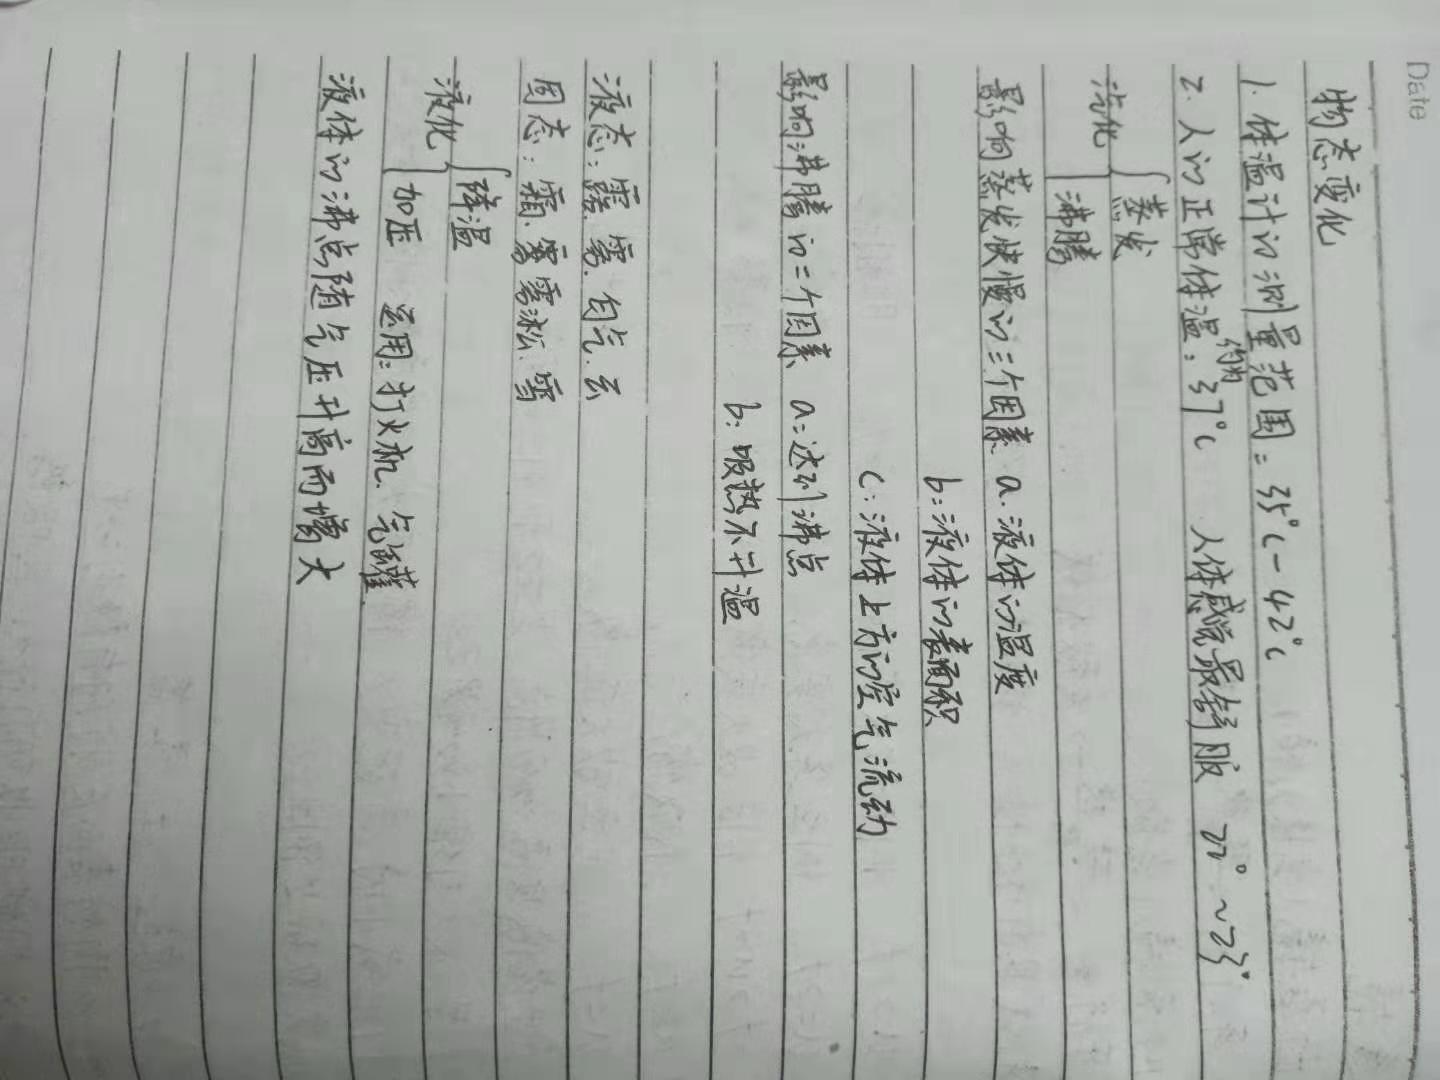 Date
物态变化
1. 体温计的测量范围：35°C-42°C
2. 人的正常体温：约为37°C 人体感觉最舒服 22°~23°
汽化{蒸发
沸腾
影响蒸发快慢的三个因素 a. 液体的温度
b：液体的表面积
c：液体上方的空气流动
影响沸腾的二个因素 a：达到沸点
b：吸热不升温
液态：露. 雾. 白气. 云
固态：霜. 雾淞. 雪
液化{降温
加压 运用：打火机. 气罐
液体的沸点随气压升高而增大